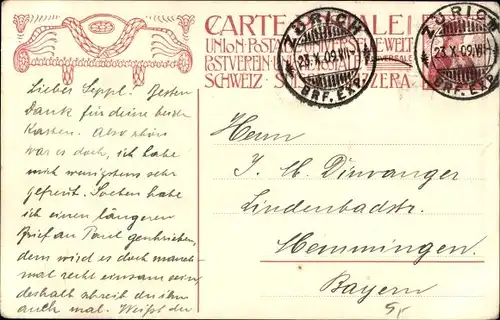 CARTE POSTALE
UNION POSTALE UNIVERSELLE WELT
POSTVEREIN UNIONE POSTALE UNIVERSALE
SCHWEIZ SUISSE SVIZZERA
ZÜRICH
23.X.09.VII
BRF.EXP.
ZÜRICH
23.X.09.VII
BRF.EXP.
Lieber Seppl! Besten
Dank für deine beiden
Karten. Also schön
war es doch, ich habe
mich wenigstens sehr
gefreut. Soeben habe
ich einen längeren
Brief an geschrieben,
dem wird es doch manch-
mal recht einsam sein,
deshalb schreib du ihm
auch mal. Weißt du
Herrn
J. M. Dinvanger
Lindenbadstr.
Memmingen.
Bayern